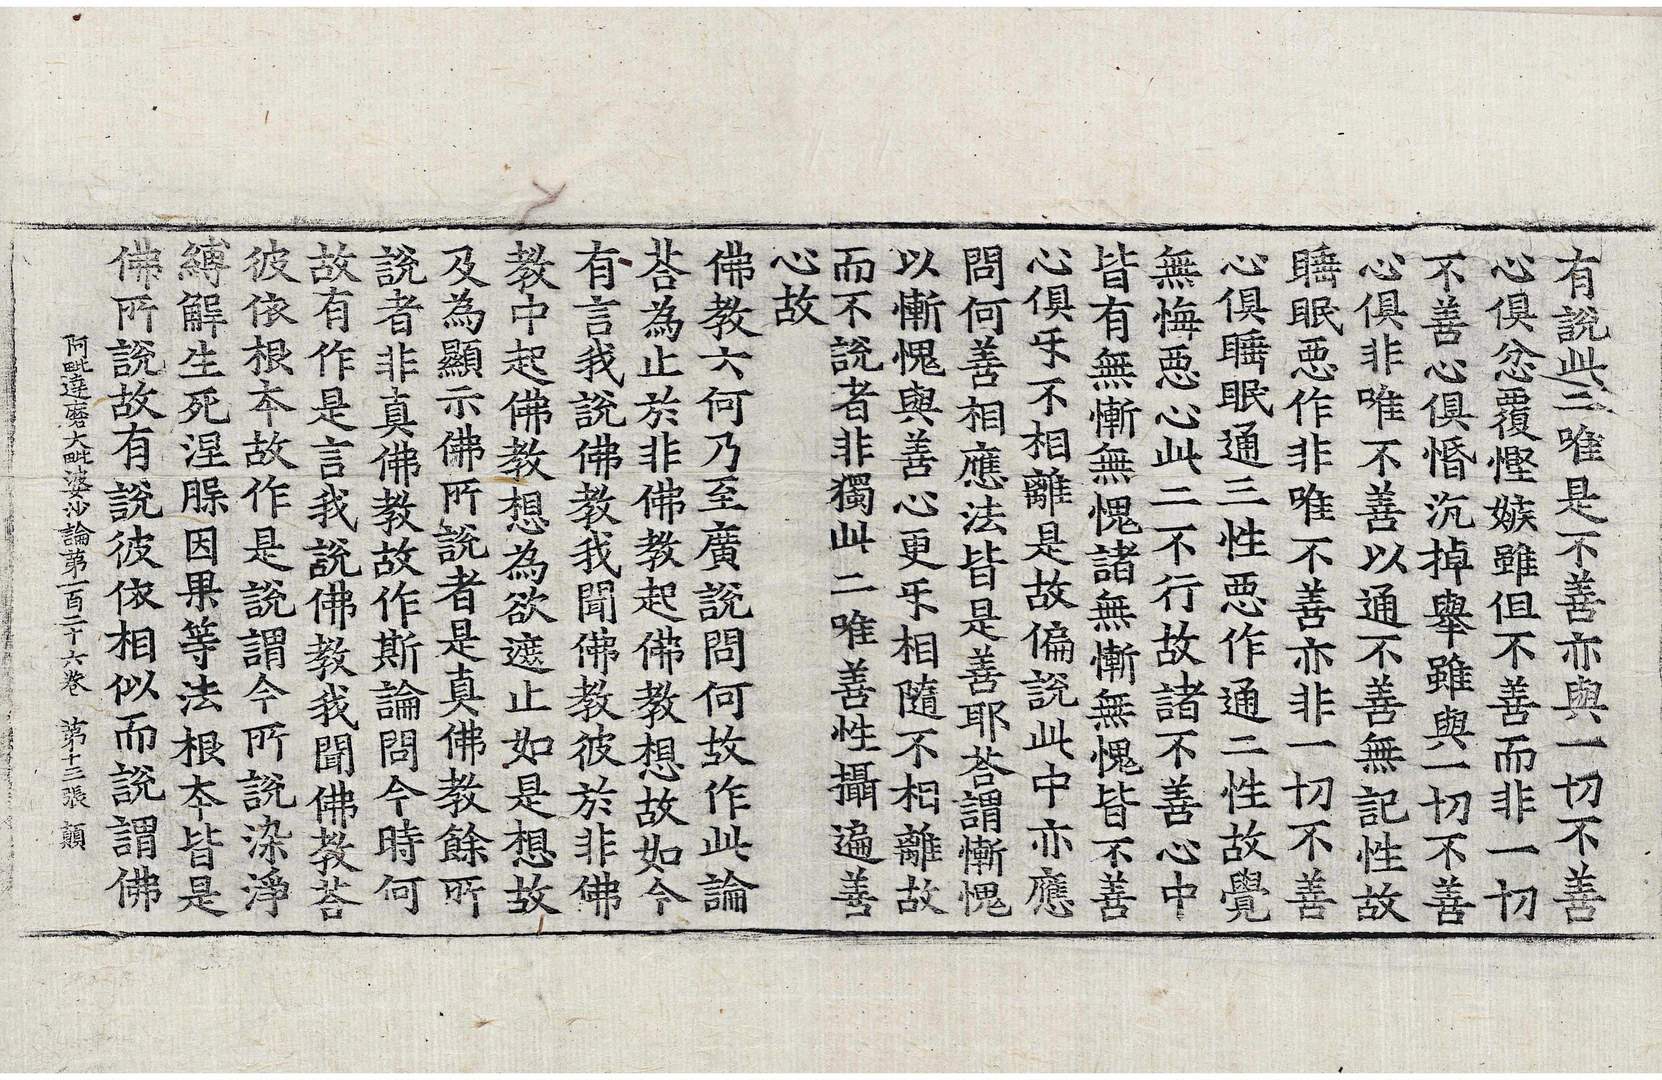 有說此二唯是不善亦與一切不善
心俱忿覆慳嫉雖但不善而非一切
不善心俱惛沉掉舉雖與一切不善
心俱非唯不善以通不善無記性故
睡眠惡作非唯不善亦非一切不善
心俱睡眠通三性惡作通二性故覺
無悔惡心此二不行故諸不善心中
皆有無慚無愧諸無慚無愧皆不善
心俱𠄏不相離是故偏說此中亦應
問何善相應法皆是善耶荅謂慚愧
以慚愧與善心更𠄏相隨不相離故
而不說者非獨此二唯善性攝遍善
心故
佛教六何乃至廣說問何故作此論
荅為止於非佛教起佛教想故如今
有言我說佛教我聞佛教彼於非佛
教中起佛教想為欲遮止如是想故
及為顯示佛所說者是真佛教餘所
說者非真佛教故作斯論問今時何
故有作是言我說佛教我聞佛教荅
彼依根本故作是說謂今所說染淨
縛解生死涅槃因果等法根本皆是
佛所說故有說彼依相似而說謂佛
阿毗達磨大毗婆沙論第一百二十六卷　第十三張　顛